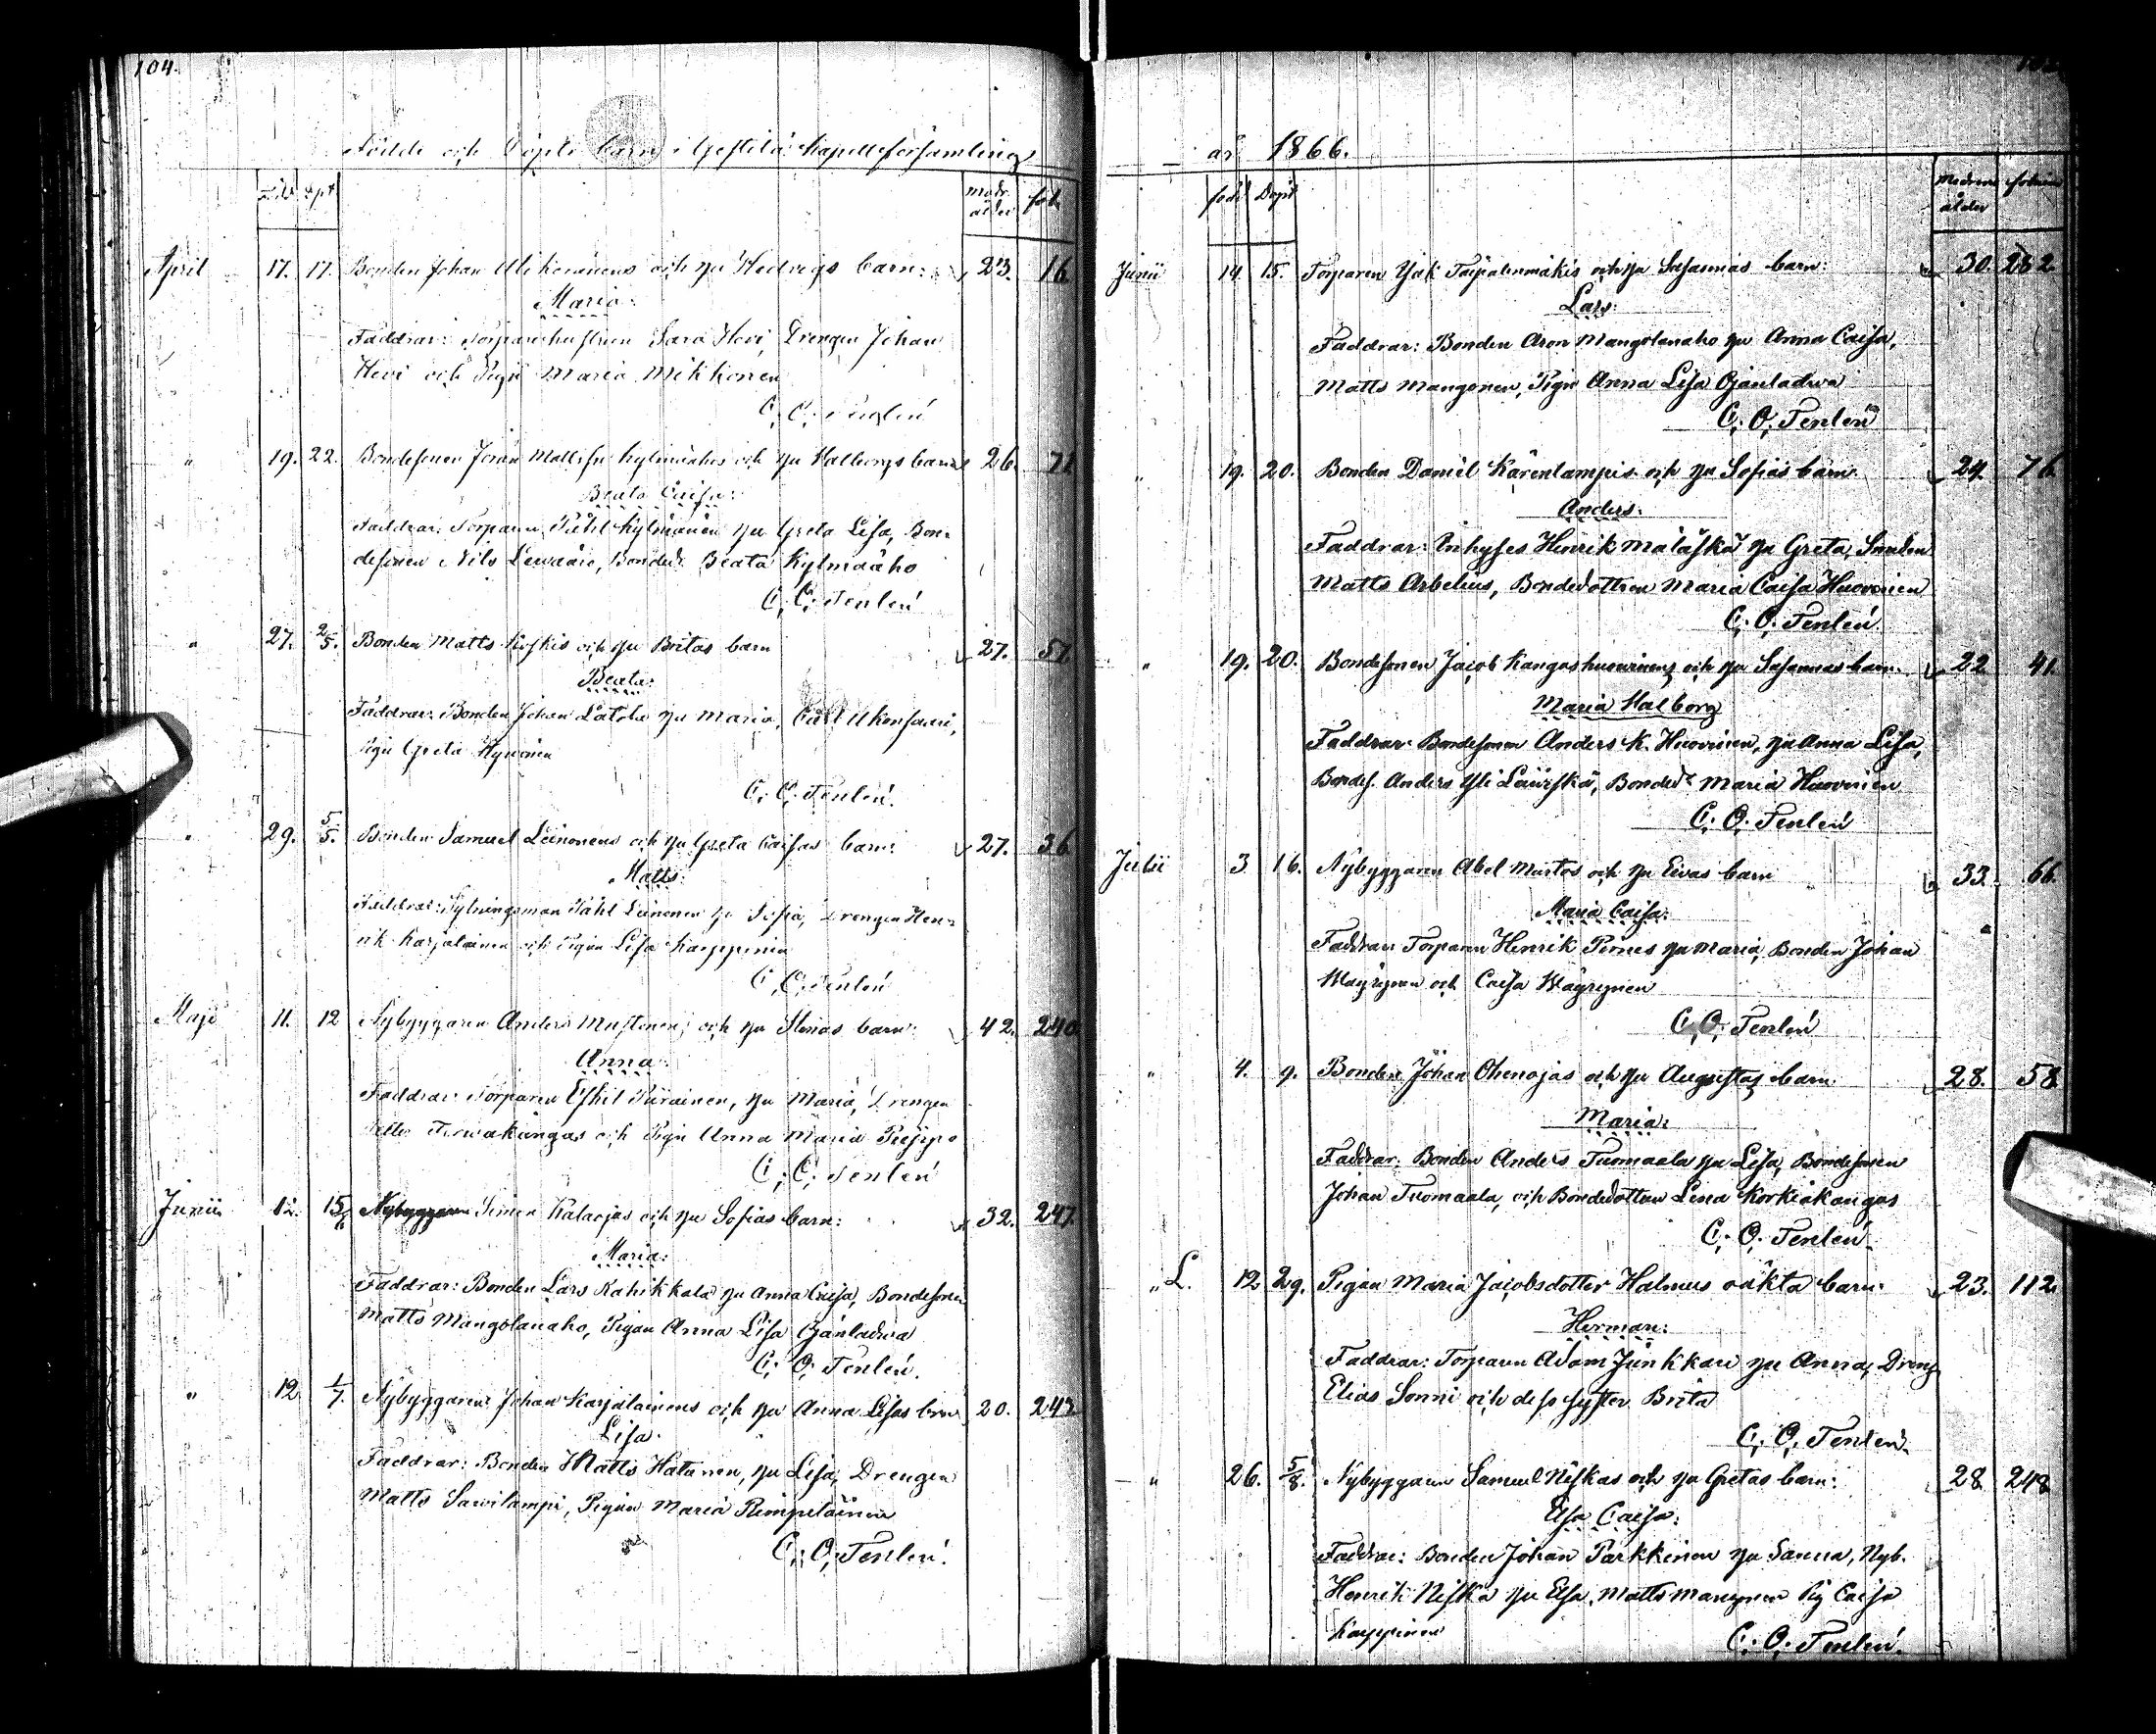 104.
Födde och Döpte barn i Gestilä Kapellförsamling
Född Dpt modr. ålder fol.
April 17. 17. Bonden Johan Mikonens och hu Hedvigs barn: 23. 16
Maria:
Faddrar: Torparehustrun Sara Hevi, Drengen Johan
Hevi och Pign Maria Mikkonen
C. O. Tenlén
" 19. 22. Bondesonen Jöran Mattsson Kylmäahos och hu Walborgs barn 26. 71
Beata Caisa:
Faddrar: Torparen Påhl Kylmänen hu Greta Lisa, Bon-
desonen Nils Lewään, Bonded: Beata Kylmäaho
C. O. Tenlén
" 27. 2/5. Bonden Matts Koskis och hu Britas barn 27. 57.
Beata:
Faddrar: Bonden Johan Latola hu Maria, Carl Ukonsaari,
Pign Greta Hyvönen
C. O. Tenlén.
" 29. 5/5. Bonden Samuel Leinonens och hu Greta Caisas barn: 27. 36
Matts:
Faddrar: Sytningsman Påhl Leinonen hu Sofia, Drengen Hen-
rik Karjalainen och Pigan Lisa Karppinen
C. O. Tenlén
Maji 11. 12 Nybyggaren Anders Mustonens och hu Stinas barn: 42. 240
Anna:
Faddrar: Torparen Eskil Piirainen, hu Maria, Drengen
Terwakangas och Pign Anna Maria Piippo
C. O. Tenlén
Junii 12. 15/6 Nybyggaren Simon Kalaojas och hu Sofias barn: 32. 247.
Maria:
Faddrar: Bonden Lars Kahikkala hu Anna Caisa, Bondesonen
Matts Mangolanaho, Pigan Anna Lisa Ojanladwa
C. O. Tenlén.
" 12 1/7. Nybyggaren Johan Karjalainens och hu Anna Lisas brn 20. 247
Lisa.
Faddrar: Bonden Matts Hatunen, hu Lisa, Drengen
Matts Sawilampi, Pigan Maria Rimpeläinen
C. O. Tenlén.
år 1866.
född Döpt Modrens ålder folium
Junii 14. 15. Torparen Isak Taipalenmäkis och hu Susannas barn: 30. 282.
Lars:
Faddrar: Bonden Aron Mangolanaho hu Anna Caisa,
Matts Mangonen, Pign Anna Lisa Ojanladwa
C. O. Tenlén
" 19. 20. Bonden Daniel Kärenlampis och hu Sofias barn: 24. 76.
Anders:
Faddrar: Inhyses Henrik Malaska hu Greta, Smeden
Matts Arbelius, Bondedottren Maria Caisa Huovinen
C. O. Tenlén.
" 19. 20. Bondesonen Jacob Kangashuovinens och hu Susannas barn. 22 41.
Maria Walborg
Faddrar: Bondesonen Anders K. Huovinen, hu Anna Lisa,
Bondes. Anders Yli Lauriska, Bonded:r Maria Huovinen
C. O. Tenlén
Julii 3 16. Nybyggaren Abel Mustos och hu Evas barn 33. 66.
Maria Caisa:
Faddrar: Torparen Henrik Pirnes hu Maria, Bonden Johan
Wäyrynen och Caisa Wäyrynen
C. O. Tenlén
" 4. 9. Bonden Johan Ohenojas och hu Augustas barn: 28. 58
Maria:
Faddrar: Bonden Anders Tuomaala hu Lisa, Bondesonen
Johan Tuomaala, och Bondedottren Lena Korkiakangas
C. O. Tenlén.
" L. 12 29. Pigan Maria Jacobsdotter Halmes oäkta barn: 23. 112.
Herman:
Faddrar: Torparen Adam Junkkari hu Anna, Dreng
Elias Sonni och dess syster Brita
C. O. Tenlén.
" 26. 5/8. Nybyggaren Samuel Niskas och hu Gretas barn: 28 248
Elsa Caisa:
Faddrar: Bonden Johan Parkkinen hu Sanna, Nyb.
Henrik Niska hu Elsa, Matts Manninen Pig Caisa
Karppinen
C. O. Tenlén.